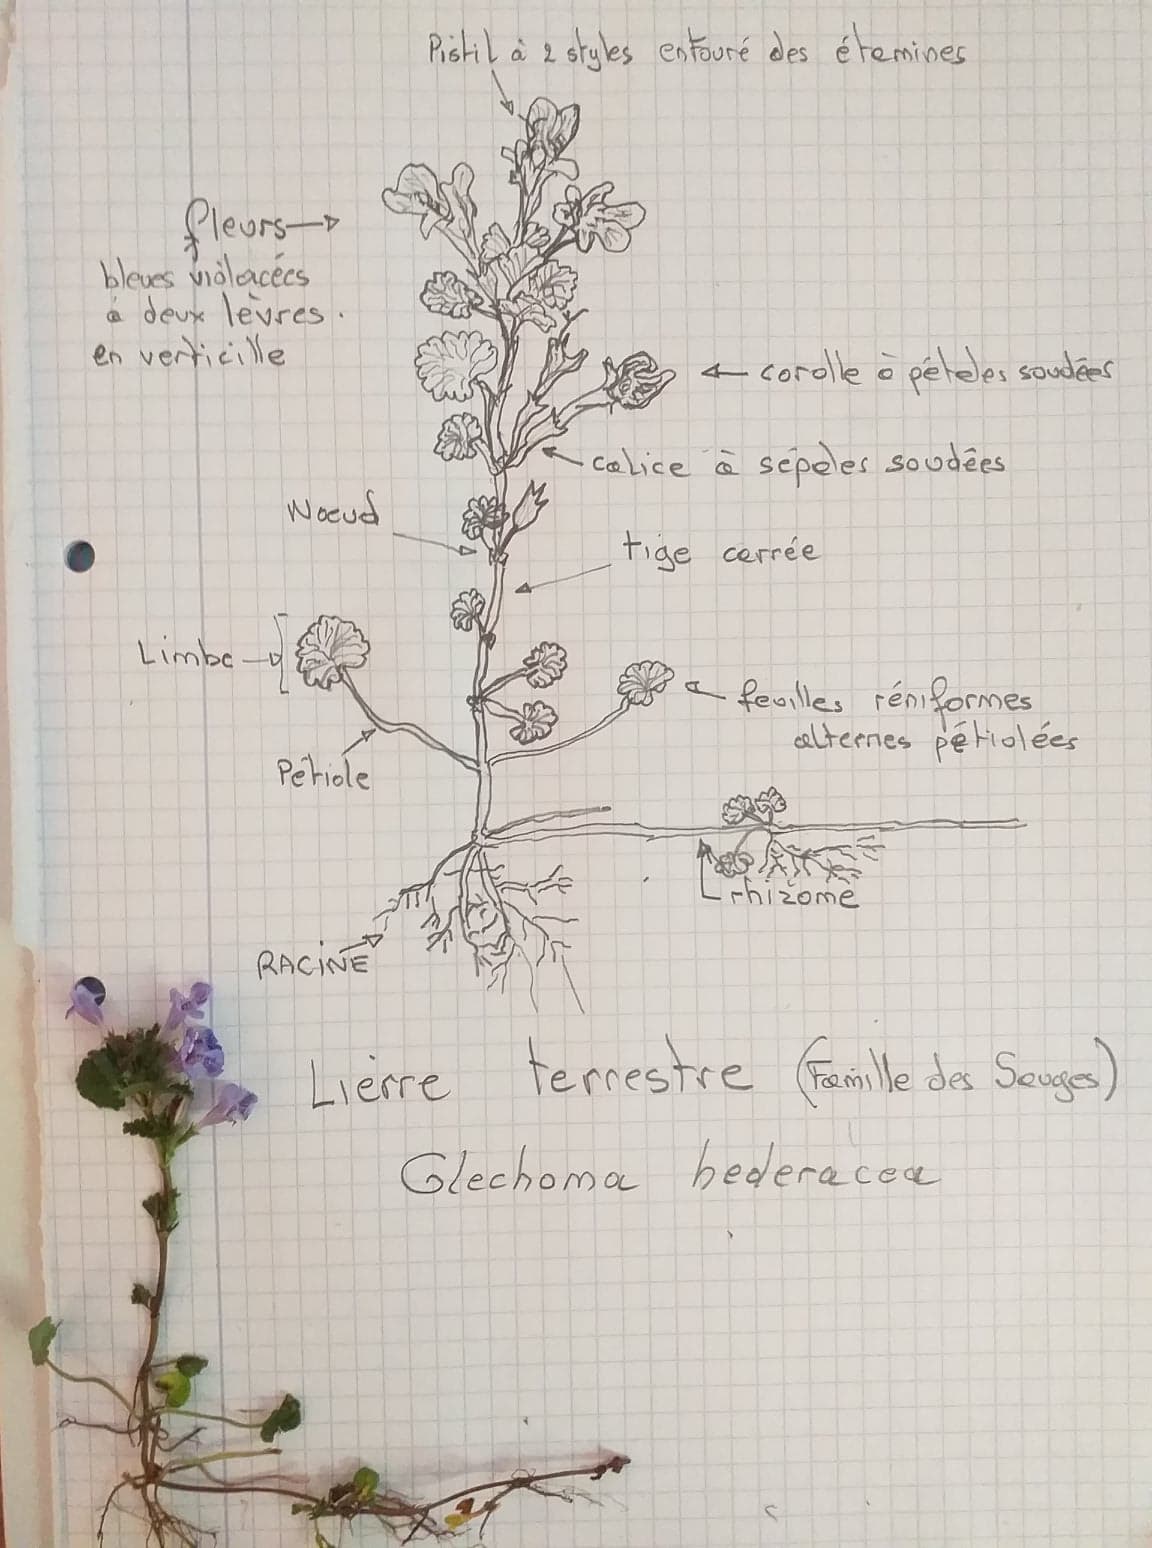 Pistil à 2 styles entouré des étamines
fleurs
bleues violacées
à deux lèvres.
en verticille
corolle à pétales soudées
calice à sépales soudées
Noeud
tige carrée
Limbe
feuilles réniformes
alternes pétiolées
Pétiole
rhizome
RACINE
Lierre terrestre (Famille des Sauges)
Glechoma hederacea